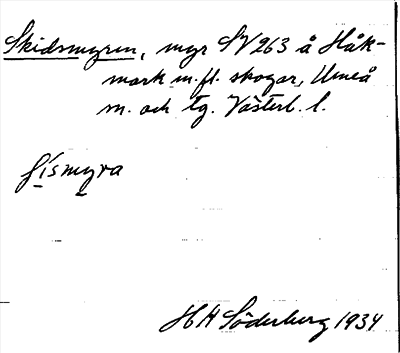 Skidsmyren, myr SV 263 å Håk-
mark m.fl. skogar, Umeå
m. och tg. Västerb. l.
H A Söderberg 1934